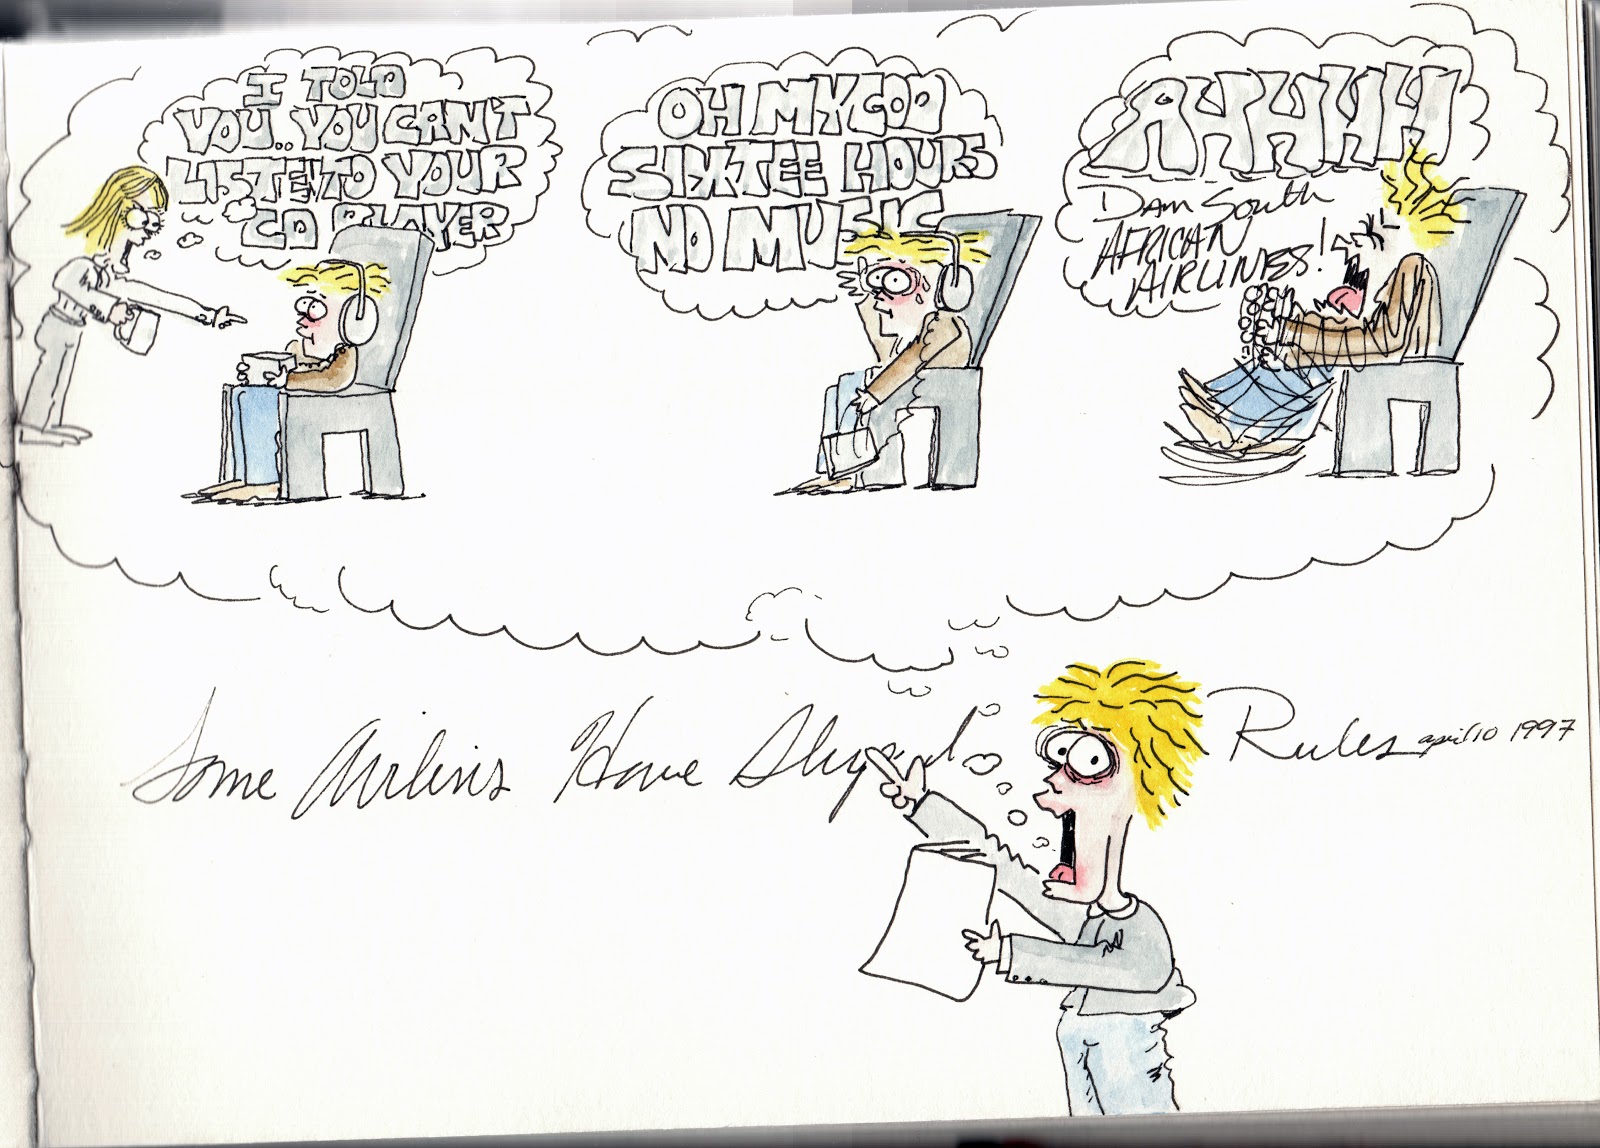 I TOLD
YOU.. YOU CAN'T
LISTEN TO YOUR
CD PLAYER
OH MY GOD
SIXTEE HOURS
NO MUSIC
AHHHH
DAM SOUTH
AFRICAN
AIRLINES!
Some Airlins Have Rules april 10 1997